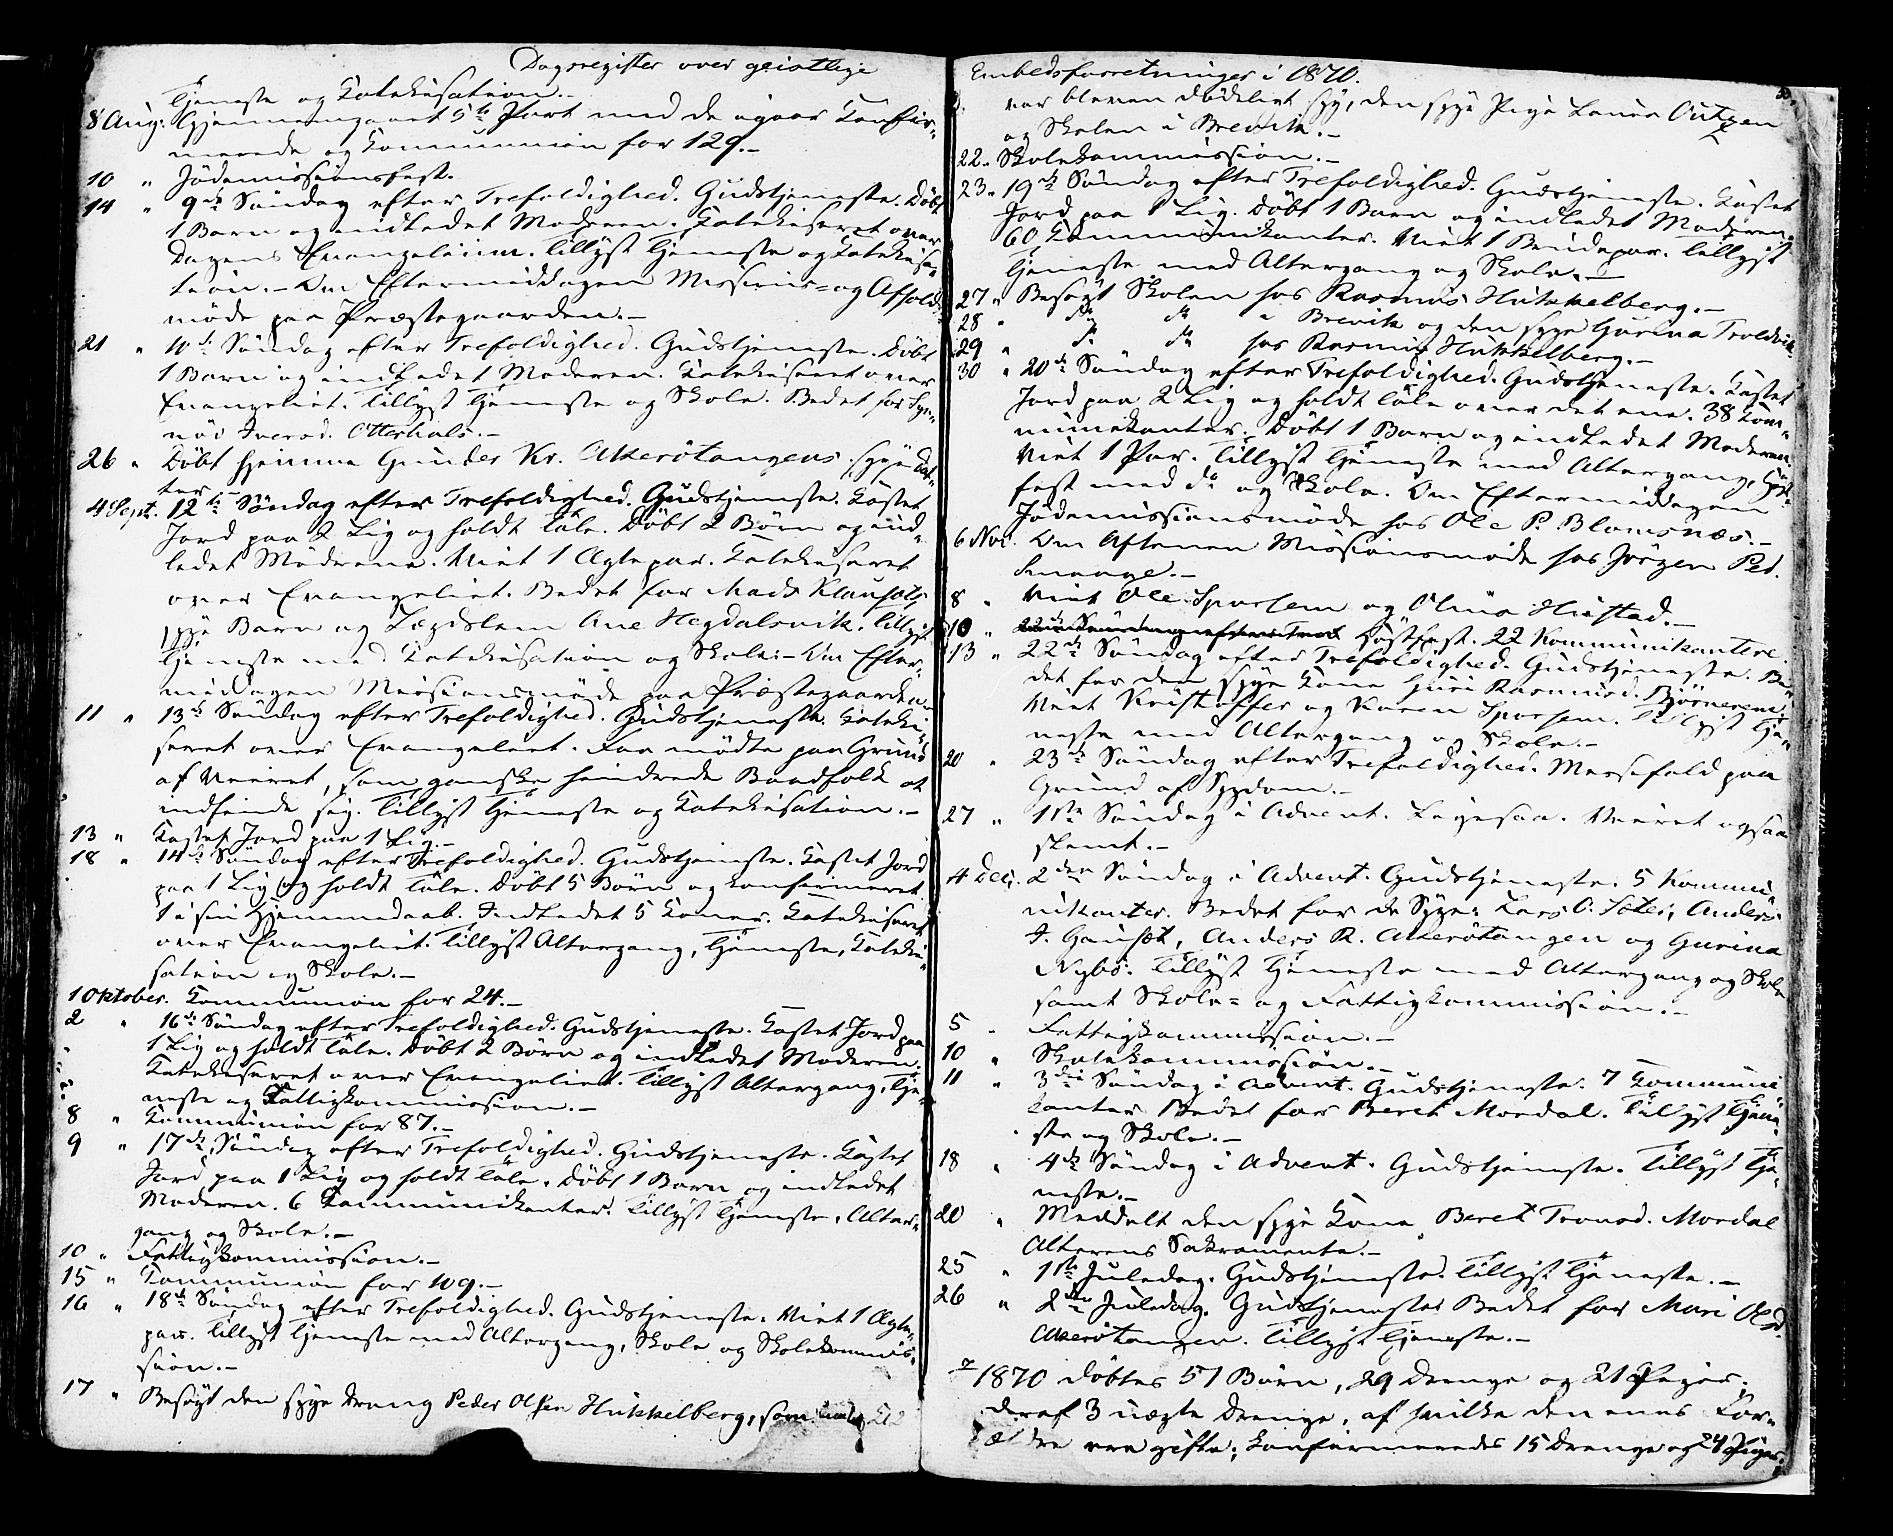 Dagsregister over geistlige
Tjeneste og Katekisation.–
8 Aug. Gjennemgaaet 5te Part med de igaar Konfir-
merede og Kommunion for 129.–
10 „ Jødemissionsfest.
14 „ 9de Søndag efter Trefoldighed. Gudstjeneste. Døbt
1 Barn og indledet Moderen. Katekiseret over
Dagens Evangelium. Tillyst Tjeneste og Katekisa-
tion.– Om Eftermiddagen Missions- og Afholds-
møde paa Præstegaarden.–
21 „ 10de Søndag efter Trefoldighed. Gudstjeneste. Døbt
1 Barn og indledet Moderen. Katekiseret over
Evangeliet. Tillyst Tjeneste og Skole. Bedet for Syn-
növ Iversd. Otterhals.–
26 „ Døbt hjemme Gunder Kr. Akerötangens syge Dat-
ter
4 Sept. 12te Søndag efter Trefoldighed. Gudstjeneste. Kastet
Jord paa 2 Lig og holdt Tale. Døbt 2 Børn og ind-
ledet Mødrene. Viet 1 Ægtepar. Katekiseret
over Evangeliet. Bedet for Mads Klausets
syge Barn og Lægdslem Ane Hegdalsvik. Tillyst
Tjeneste med Katekisation og Skole.– Om Efter-
middagen Missionsmøde paa Præstegaarden.
11 „ 13de Søndag efter Trefoldighed. Gudstjeneste. Kateki-
seret over Evangeliet. Faa mødte paa Grund
af Veiret, som ganske hindrede Baadfolk at
indfinde sig. Tillyst Tjeneste og Katekisation.–
13 „ Kastet Jord paa 1 Lig.–
18 „ 14de Søndag efter Trefoldighed. Gudstjeneste. Kastet Jord
paa 1 Lig og holdt Tale. Døbt 5 Børn og konfirmeret
1 i sin Hjemmedaab. Indledet 5 Koner. Katekiseret
over Evangeliet. Tillyst Altergang, Tjeneste, Kateki-
sation og Skole.–
1 Oktober. Kommunion for 24.–
2 „ 16de Søndag efter Trefoldighed. Gudstjeneste. Kastet Jord paa
1 Lig og holdt Tale. Døbt 2 Børn og indledet Moderen.
Katekiseret over Evangeliet. Tillyst Altergang, Tje-
neste og Fattigkommission.–
8 „ Kommunion for 87.–
9 „ 17de Søndag efter Trefoldighed. Gudstjeneste. Kastet
Jord paa 1 Lig og holdt Tale. Døbt 1 Barn og indledet
Moderen. 6 Kommunikanter. Tillyst Tjeneste, Alter-
gang og Skole.–
10 „ Fattigkommission.–
15 „ Kommunion for 109.–
16 „ 18de Søndag efter Trefoldighed. Gudstjeneste. Viet 1 Ægte-
par. Tillyst Tjeneste med Altergang, Skole og Skolekommis-
sion.–
17 „ Besøgt den syge Dreng Peder Olsen Hukkelberg, som
Embedsforretninger i 1870.
var bleven dødeligt syg, den syge Pige Laura
og Skolen i Brevik.–
22. Skolekommission.–
23 „ 19de Søndag efter Trefoldighed. Gudstjeneste. Kastet
Jord paa 1 Lig. Døbt 1 Barn og indledet Moderen.
60 Kommunikanter. Viet 1 Brudepar. Tillyst
Tjeneste med Altergang og Skole.–
27 „ Besøgt Skolen hos Rasmus Hukkelberg.–
28 „ do do i Brevik og den syge Gurina Troldvik
29 „ do do hos Rasmus Hukkelberg.–
30 „ 20de Søndag efter Trefoldighed. Gudstjeneste. Kastet
Jord paa 2 Lig og holdt Tale over det ene. 38 Kom-
munikanter. Døbt 1 Barn og indledet Moderen.
Viet 1 Par. Tillyst Tjeneste med Altergang, Høst-
fest med do og Skole. Om Eftermiddagen
Jødemissionsmøde hos Ole P. Blomsnæs.–
6 Nov. Om Aftenen Missionsmøde hos Jørgen Ped.
8 „ Viet Ole Sporsem og Olina Hustad.–
10 „ 22de Søndag efter Tref Høstfest. 22 Kommunikantere.
13 „ 22de Søndag efter Trefoldighed. Gudstjeneste. Be-
det for den syge Kone Guri Rasmusd. Bjørnerem.
Viet Kristoffer og Karen Sporsem. Tillyst Tje-
neste med Altergang og Skole.–
20 „ 23de Søndag efter Trefoldighed. Messefald paa
Grund af Sygdom.–
27 „ 1ste Søndag i Advent. Ligesaa. Veiret ogsaa
slemt.–
4 Dec. 2den Søndag i Advent. Gudstjeneste. 5 Kommu-
nikanter. Bedet for de Syge: Lars O. Sæter, Anders
J. Gauset, Anders R. Akerötangen og Gurina
Nybö. Tillyst Tjeneste med Altergang og Skole
samt Skole- og Fattigkommission.–
5 „ Fattigkommission.–
10 „ Skolekommission.–
11 „ 3die Søndag i Advent. Gudstjeneste. 7 Kommuni-
kanter. Bedet for Beret Mordal. Tillyst Tjene-
ste og Skole.–
18 „ 4de Søndag i Advent. Gudstjeneste. Tillyst Tje-
neste.–
20 „ Meddelt den syge Kone Beret Tronsd. Mordal
Alterens Sakramente.–
25 „ 1ste Juledag. Gudstjeneste. Tillyst Tjeneste.–
26 „ 2den Juledag. Gudstjeneste. Bedet for Mari Olsd.
Akerötangen. Tillyst Tjeneste.–
1870 døbtes 51 Børn, 29 Drenge og 21 Piger,
deraf 3 uægte Drenge, af hvilke den enes For-
ældre ere gifte; konfirmeredes 15 Drenge og 24 Piger;